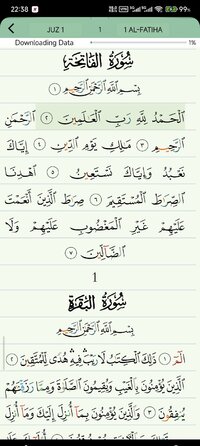 22:38
JUZ 1 1 1 AL-FATIHA
Downloading Data 1%
سُورَةُ الفَاتِحَةِ
بِسْمِ اللَّهِ الرَّحْمَٰنِ الرَّحِيمِ ١
الْحَمْدُ لِلَّهِ رَبِّ الْعَالَمِينَ ٢ الرَّحْمَٰنِ
الرَّحِيمِ ٣ مَالِكِ يَوْمِ الدِّينِ ٤ إِيَّاكَ
نَعْبُدُ وَإِيَّاكَ نَسْتَعِينُ ٥ اهْدِنَا
الصِّرَاطَ الْمُسْتَقِيمَ ٦ صِرَاطَ الَّذِينَ أَنْعَمْتَ
عَلَيْهِمْ غَيْرِ الْمَغْضُوبِ عَلَيْهِمْ وَلَا
الضَّالِّينَ ٧
1
سُورَةُ البَقَرَةِ
بِسْمِ اللَّهِ الرَّحْمَٰنِ الرَّحِيمِ
الم ١ ذَٰلِكَ الْكِتَابُ لَا رَيْبَ فِيهِ هُدًى لِلْمُتَّقِينَ ٢
الَّذِينَ يُؤْمِنُونَ بِالْغَيْبِ وَيُقِيمُونَ الصَّلَاةَ وَمِمَّا رَزَقْنَاهُمْ
يُنْفِقُونَ ٣ وَالَّذِينَ يُؤْمِنُونَ بِمَا أُنْزِلَ إِلَيْكَ وَمَا أُنْزِلَ